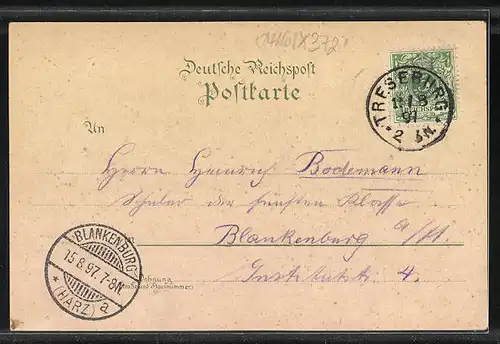 Deutsche Reichspost
Postkarte
TRESEBURG
97
* 2 *
An
Herrn Heinrich Bodemann
Schüler der fünften Klasse
Blankenburg a/H.
Institutstr. 4.
Wohnung
BLANKENBURG
15.8.97.7-8N.
* (HARZ) a